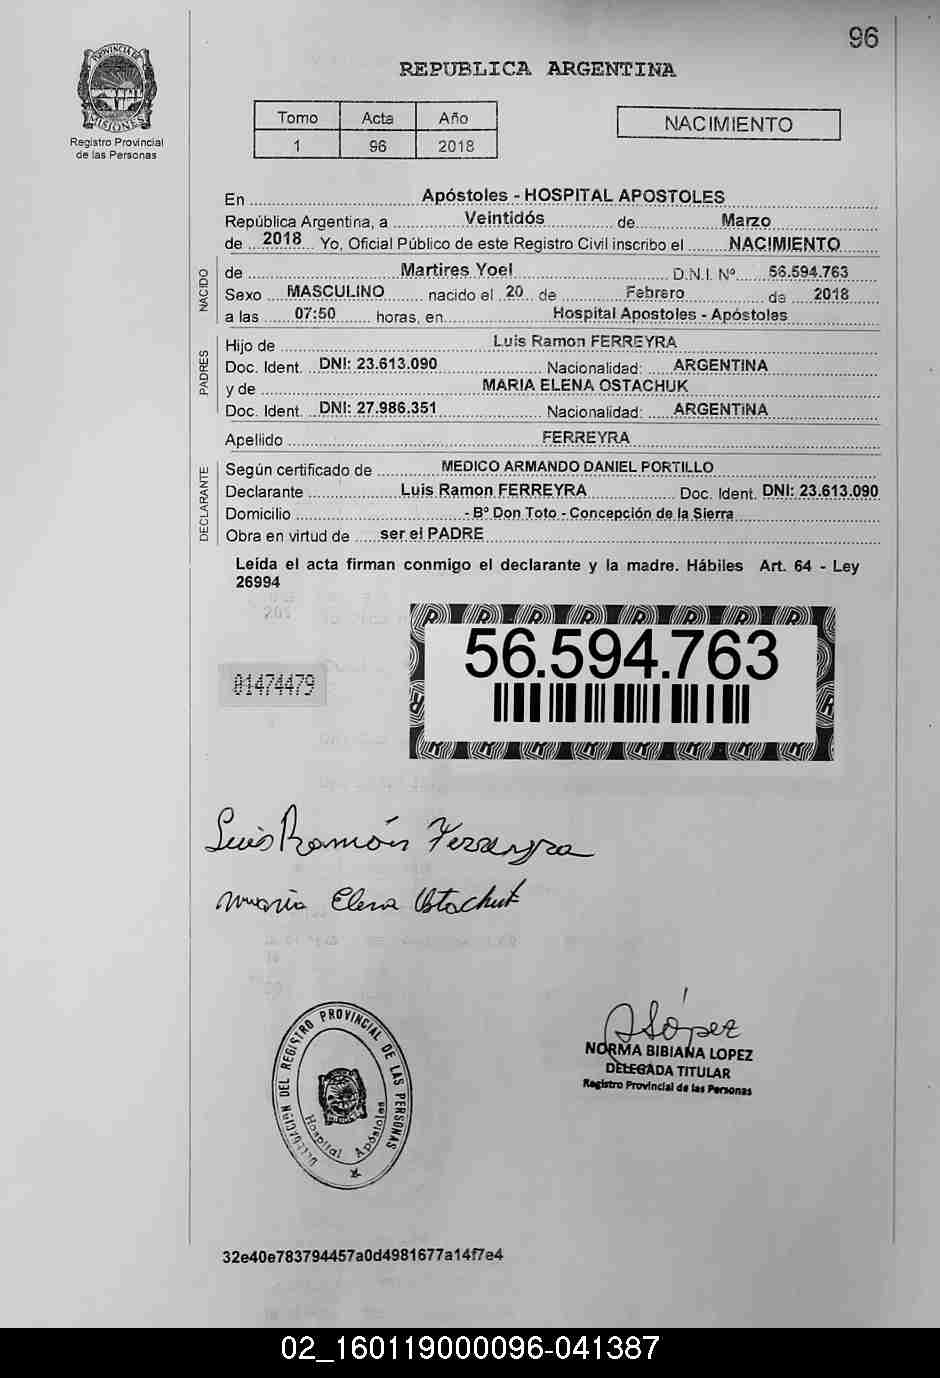 96
PROVINCIA DE
MISIONES
Registro Provincial
de las Personas
REPUBLICA ARGENTINA
Tomo Acta Año
1 96 2018
NACIMIENTO
En Apóstoles - HOSPITAL APOSTOLES
República Argentina, a Veintidós de Marzo
de 2018 Yo, Oficial Público de este Registro Civil inscribo el NACIMIENTO
NACIDO
de Martires Yoel D.N.I. Nº 56.594.763
Sexo MASCULINO nacido el 20 de Febrero de 2018
a las 07:50 horas, en Hospital Apostoles - Apóstoles
PADRES
Hijo de Luis Ramon FERREYRA
Doc. Ident. DNI: 23.613.090 Nacionalidad: ARGENTINA
y de MARIA ELENA OSTACHUK
Doc. Ident. DNI: 27.986.351 Nacionalidad: ARGENTINA
Apellido FERREYRA
DECLARANTE
Según certificado de MEDICO ARMANDO DANIEL PORTILLO
Declarante Luis Ramon FERREYRA Doc. Ident. DNI: 23.613.090
Domicilio - Bº Don Toto - Concepción de la Sierra
Obra en virtud de ser el PADRE
Leída el acta firman conmigo el declarante y la madre. Hábiles Art. 64 - Ley
26994
56.594.763
01474479
Luis Ramón Ferreyra
Maria Elena Ostachuk
DELEGACION DEL REGISTRO PROVINCIAL DE LAS PERSONAS
Hospital Apóstoles
López
NORMA BIBIANA LOPEZ
DELEGADA TITULAR
Registro Provincial de las Personas
32e40e783794457a0d4981677a14f7e4
02_160119000096-041387